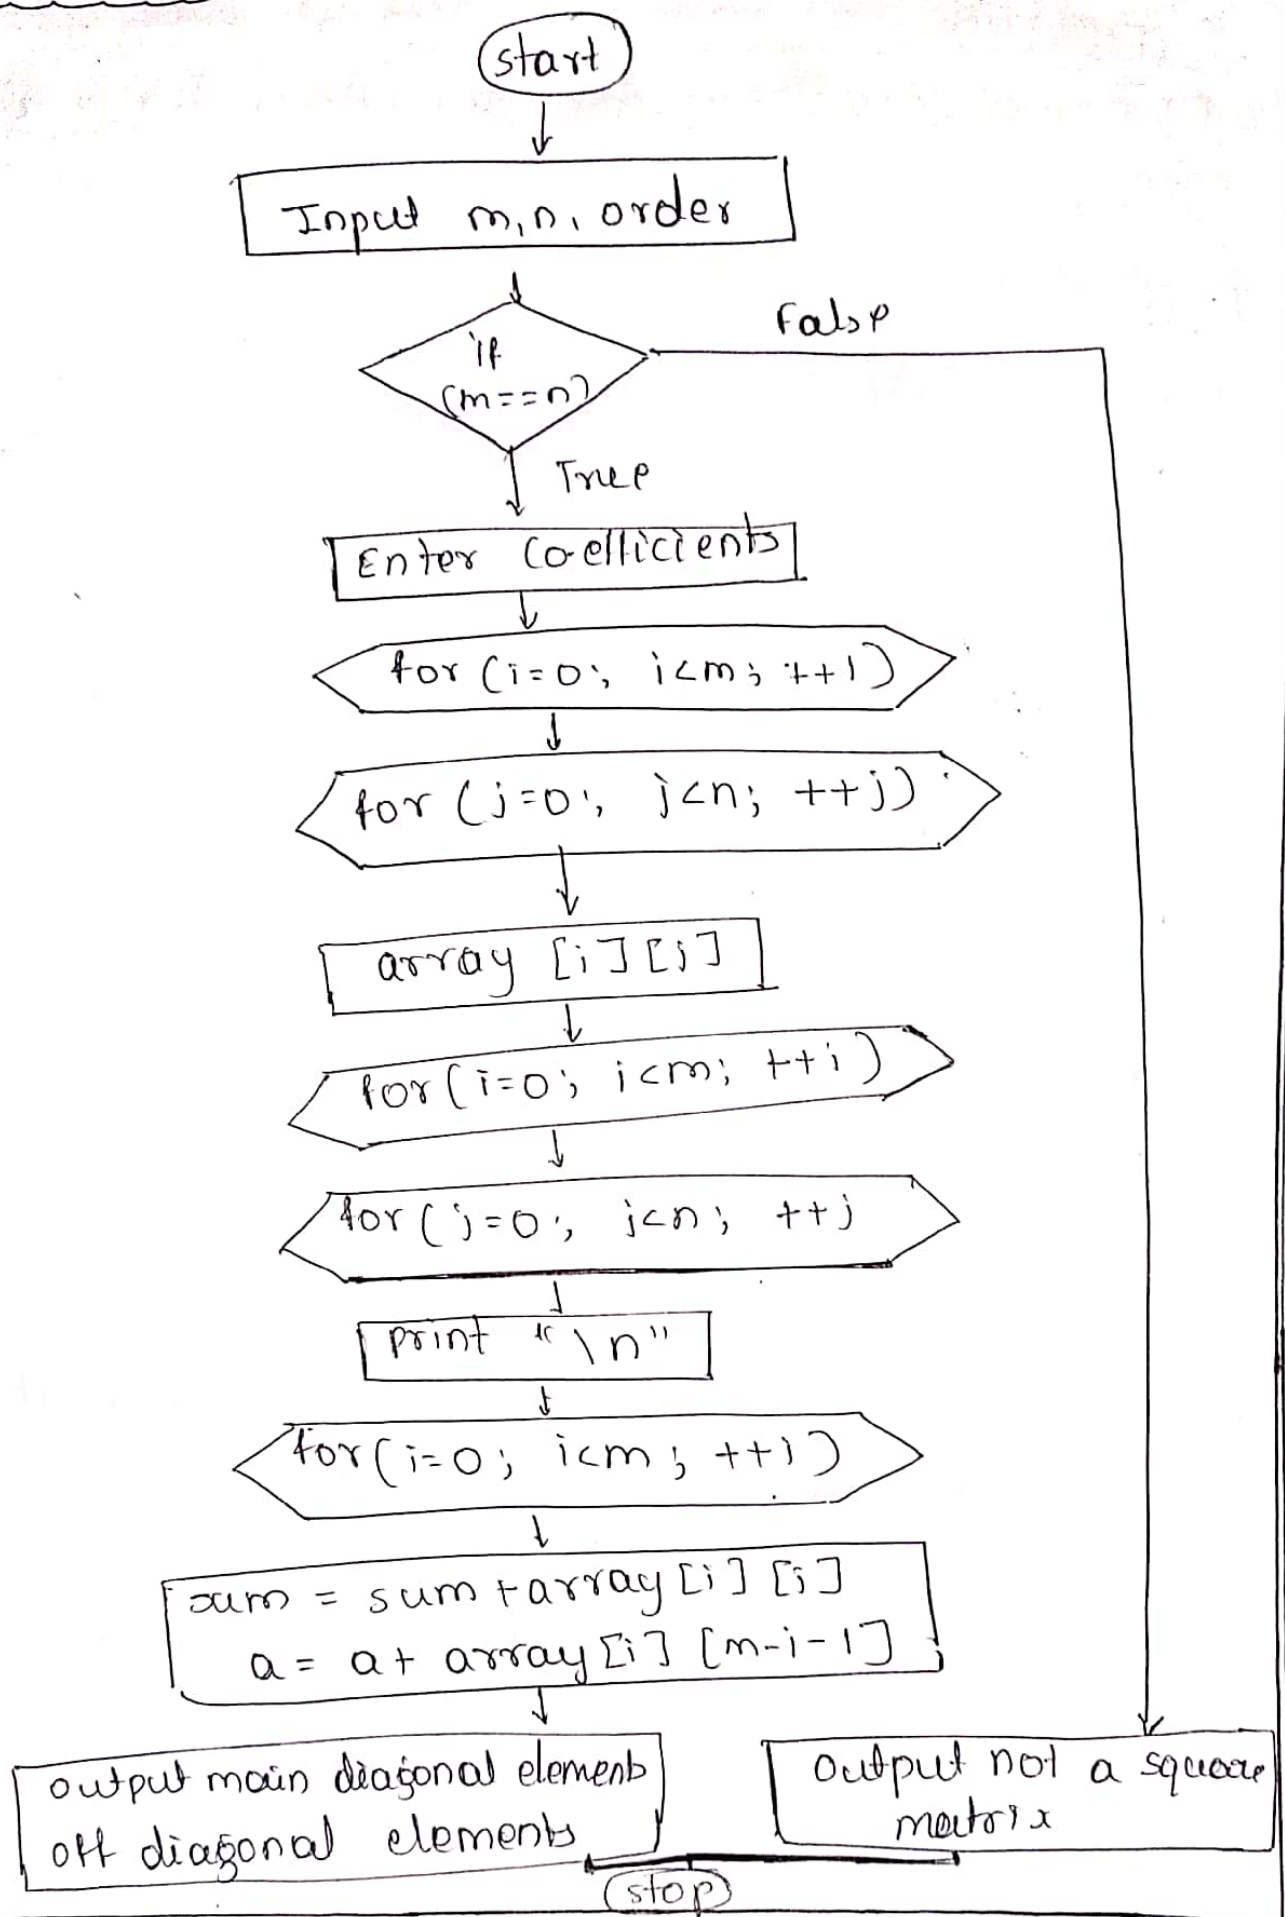 start
Input m,n, order
if
(m==n)
False
True
Enter Co-efficients
for (i=0; i<m; ++i)
for (j=0; j<n; ++j)
array [i][j]
for(i=0; i<m; ++i)
for(j=0; j<n; ++j
print "\n"
for(i=0; i<m; ++i)
sum = sum+array[i][i]
a = a+ array[i] [m-i-1]
output main diagonal elements
off diagonal elements
output not a square
matrix
stop